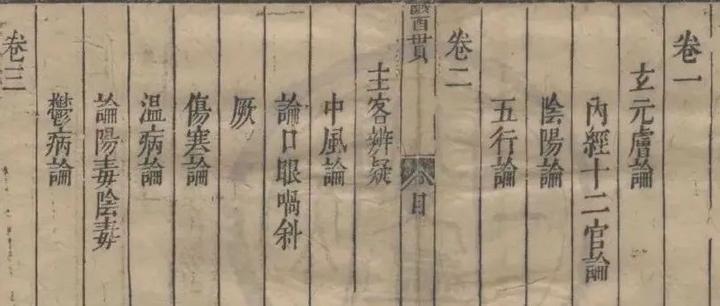 卷一
玄元膚論
內經十二官論
陰陽論
五行論
卷二
醫貫
目
主客辨疑
中風論
論口眼喎斜
厥
傷寒論
溫病論
論陽毒陰毒
鬱病論
卷三